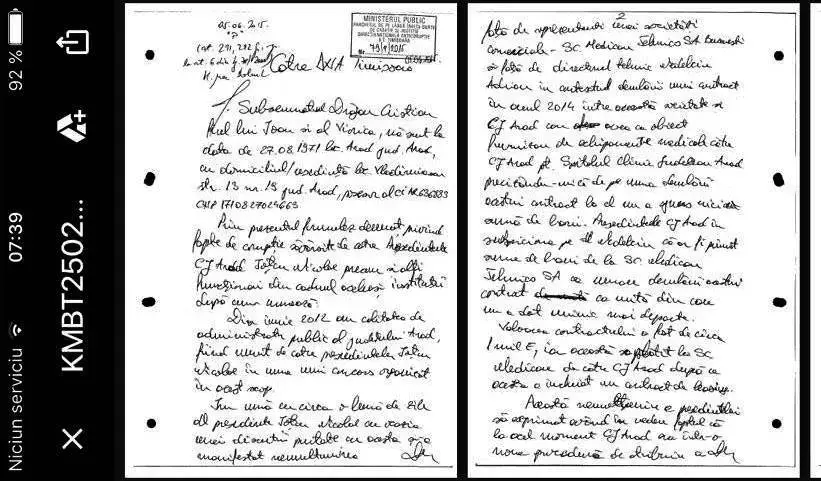 92 %
07:39
Niciun serviciu
KMBT2502...
05.06.2015.
MINISTERUL PUBLIC
PARCHETUL DE PE LÂNGĂ ÎNALTA CURTE
DE CASAȚIE ȘI JUSTIȚIE
DIRECȚIA NAȚIONALĂ ANTICORUPȚIE
S.T. TIMIȘOARA
Nr. 79/P/2015
Către DNA Timișoara
Subsemnatul Drăgan Cristian
fiul lui Ioan și al Viorica, născut la
data de 27.08.1971 în Arad jud. Arad,
cu domiciliul/reședința în Vladimirescu
str. 13 nr. 19 jud Arad, posesor al CI AR
CNP
Prin prezentul formulez denunț privind
fapte de corupție săvârșite de către Președintele
CJ Arad Ioțcu Nicolae precum și alți
funcționari din cadrul aceleași instituții
după cum urmează:
Din iunie 2012 am calitatea de
administrator public al județului Arad,
fiind numit de către președintele Ioțcu
Nicolae în urma unui concurs organizat
în acest scop.
În urmă cu circa o lună de zile
dl președinte Ioțcu Nicolae cu ocazia
unei discuții purtate cu acesta și-a
manifestat nemulțumirea
2
față de reprezentanții unei societăți
comerciale - SC Medicare Tehnics SA București
și față de directorul tehnic
Adrian în contextul derulării unui contract
în anul 2014 între această societate și
CJ Arad care avea ca obiect
furnizarea de echipamente medicale către
CJ Arad pt. Spitalul Clinic Județean Arad
precizându-mi că de pe urma derulării
acestui contract la el nu a ajuns nicio
sumă de bani. Președintele CJ Arad îl
suspiciona pe dl că ar fi primit
sume de bani de la SC Medicare
Tehnics SA ca urmare derulării acestui
contract ca mită din care
nu a dat nimic mai departe.
Valoarea contractului a fost de circa
1 mil €, iar aceasta s-a plătit la SC
Medicare de către CJ Arad după ce
acesta a încheiat un contract de leasing.
Această nemulțumire a președintelui
s-a exprimat având în vedere faptul că
la acel moment CJ Arad era într-o
nouă procedură de a